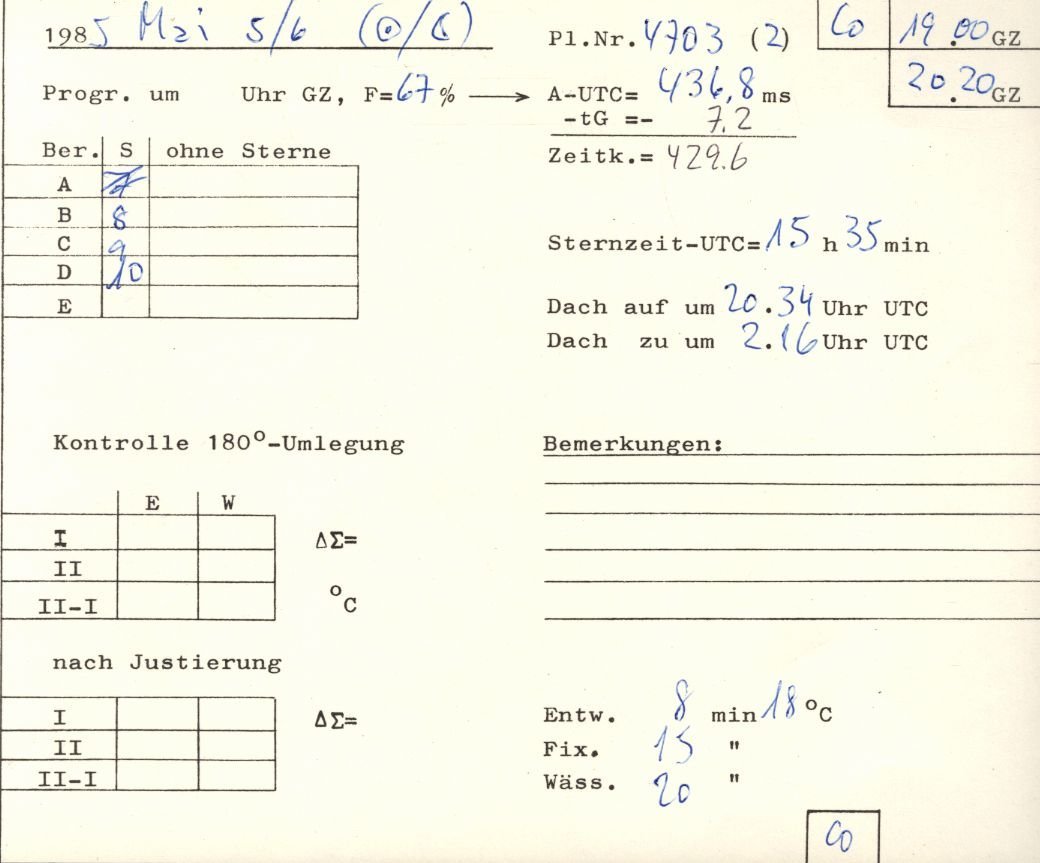 1985 Mai 5/6 (☉/☾) Pl.Nr. 4703 (2) Co 19.00 GZ
20.20 GZ
Progr. um Uhr GZ, F=67% ⟶ A-UTC= 436,8 ms
-tG =- 7.2
Zeitk.= 429.6
Ber. S ohne Sterne
A
B 8
C 9
D 10
E
Sternzeit-UTC=15 h 35 min
Dach auf um 20.34 Uhr UTC
Dach zu um 2.16 Uhr UTC
Kontrolle 180°-Umlegung
E W
I ΔΣ=
II
II-I °C
Bemerkungen:
nach Justierung
I ΔΣ=
II
II-I
Entw. 8 min 18 °C
Fix. 15 "
Wäss. 20 "
Co